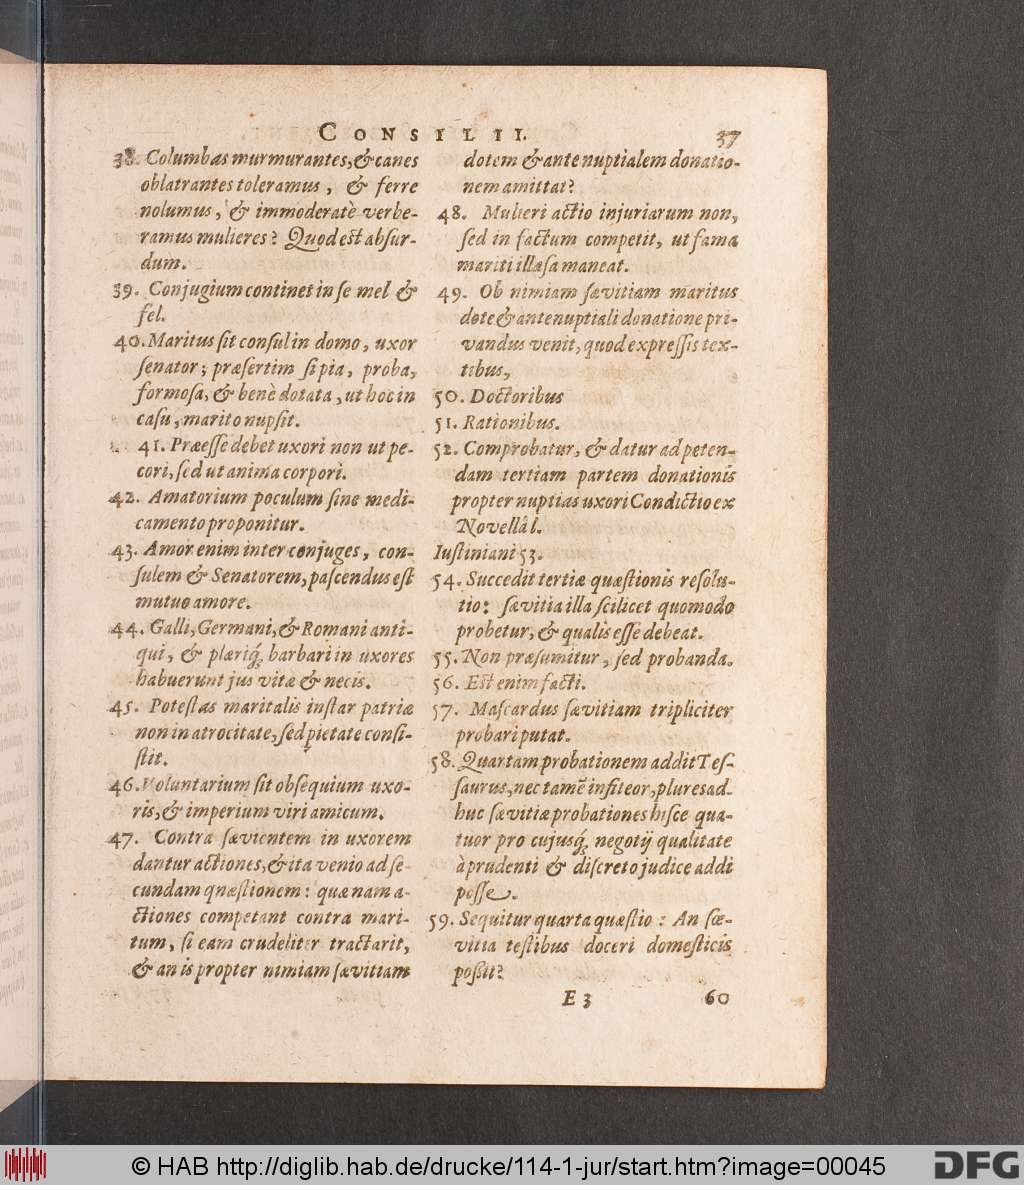 CONSILII. 37
38. Columbas murmurantes, & canes
oblatrantes toleramus, & ferre
nolumus, & immoderatè verbe-
ramus mulieres? Quod est absur-
dum.
39. Conjugium continet in se mel &
fel.
40. Maritus sit consul in domo, uxor
senator; præsertim si pia, proba,
formosa, & benè dotata, ut hoc in
casu, marito nupsit.
41. Præesse debet uxori non ut pe-
cori, sed ut anima corpori.
42. Amatorium poculum sine medi-
camento proponitur.
43. Amor enim inter conjuges, con-
sulem & Senatorem, pascendus est
mutuo amore.
44. Galli, Germani, & Romani anti-
qui, & plæriq́; barbari in uxores
habuerunt jus vitæ & necis.
45. Potestas maritalis instar patriæ
non in atrocitate, sed pietate consi-
stit.
46. Voluntarium sit obsequium uxo-
ris, & imperium viri amicum.
47. Contra sævientem in uxorem
dantur actiones, & ita venio ad se-
cundam qnæstionem: quæ nam a-
ctiones competant contra mari-
tum, si eam crudeliter tractarit,
& an is propter nimiam sævitiam
dotem & ante nuptialem donatio-
nem amittat?
48. Mulieri actio injuriarum non,
sed in factum competit, ut fama
mariti illæsa maneat.
49. Ob nimiam sævitiam maritus
dote & antenuptiali donatione pri-
vandus venit, quod expressis tex-
tibus,
50. Doctoribus
51. Rationibus.
52. Comprobatur, & datur ad peten-
dam tertiam partem donationis
propter nuptias uxori Condictio ex
Novellâ l.
Iustiniani 53.
54. Succedit tertiæ quæstionis resolu-
tio: sævitia illa scilicet quomodo
probetur, & qualis esse debeat.
55. Non præsumitur, sed probanda.
56. Est enim facti.
57. Mascardus sævitiam tripliciter
probari putat.
58. Quartam probationem addit Tes-
saurus, nec tamē infiteor, plures ad-
huc sævitiæ probationes hisce qua-
tuor pro cujusq́; negotij qualitate
à prudenti & discreto judice addi
posse.
59. Sequitur quarta quæstio: An sæ-
vitia testibus doceri domesticis
possit?
E 3 60
© HAB http://diglib.hab.de/drucke/114-1-jur/start.htm?image=00045
DFG